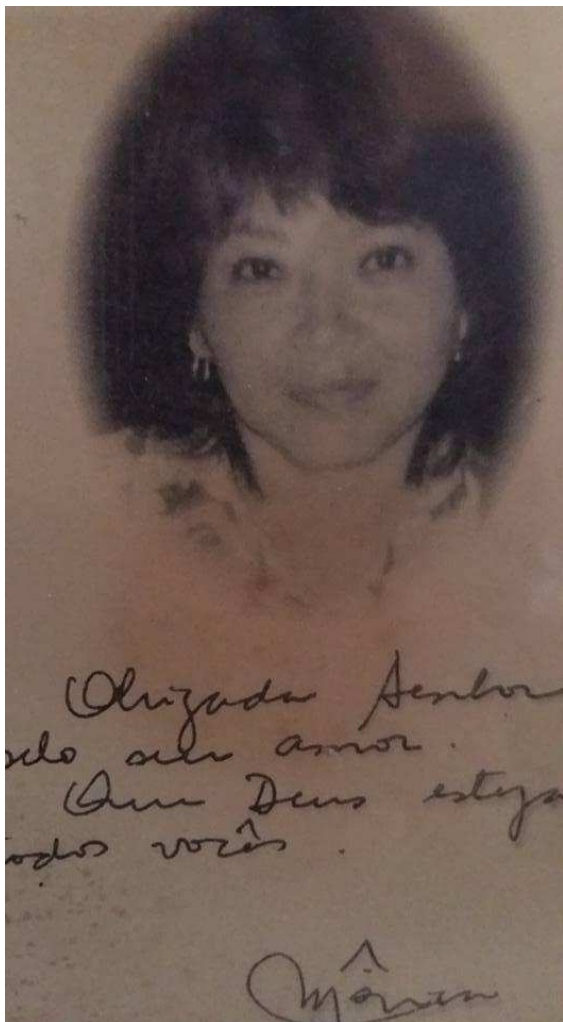 Obrigada Senhor
pelo seu amor.
Que Deus esteja
todos vocês.
Mônica